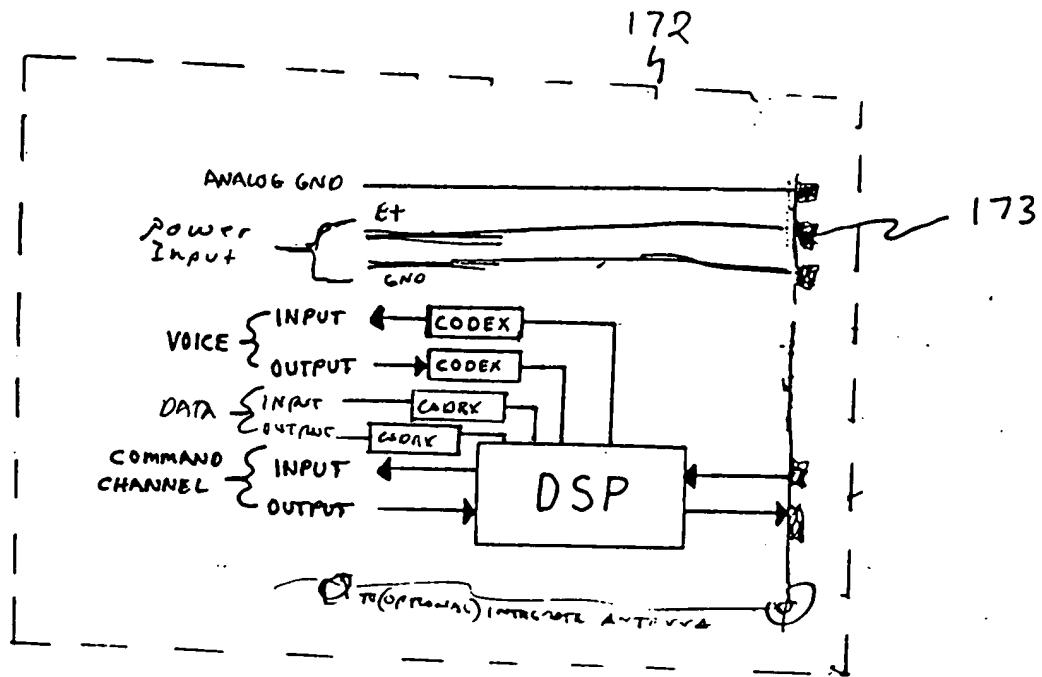 172
ANALOG GND
E+
Power
Input
GND
173
VOICE
INPUT
CODEX
OUTPUT
CODEX
DATA
INPUT
CODEX
OUTPUT
CODEX
COMMAND
CHANNEL
INPUT
OUTPUT
DSP
TO (OPTIONAL) INTEGRATE ANTENNA